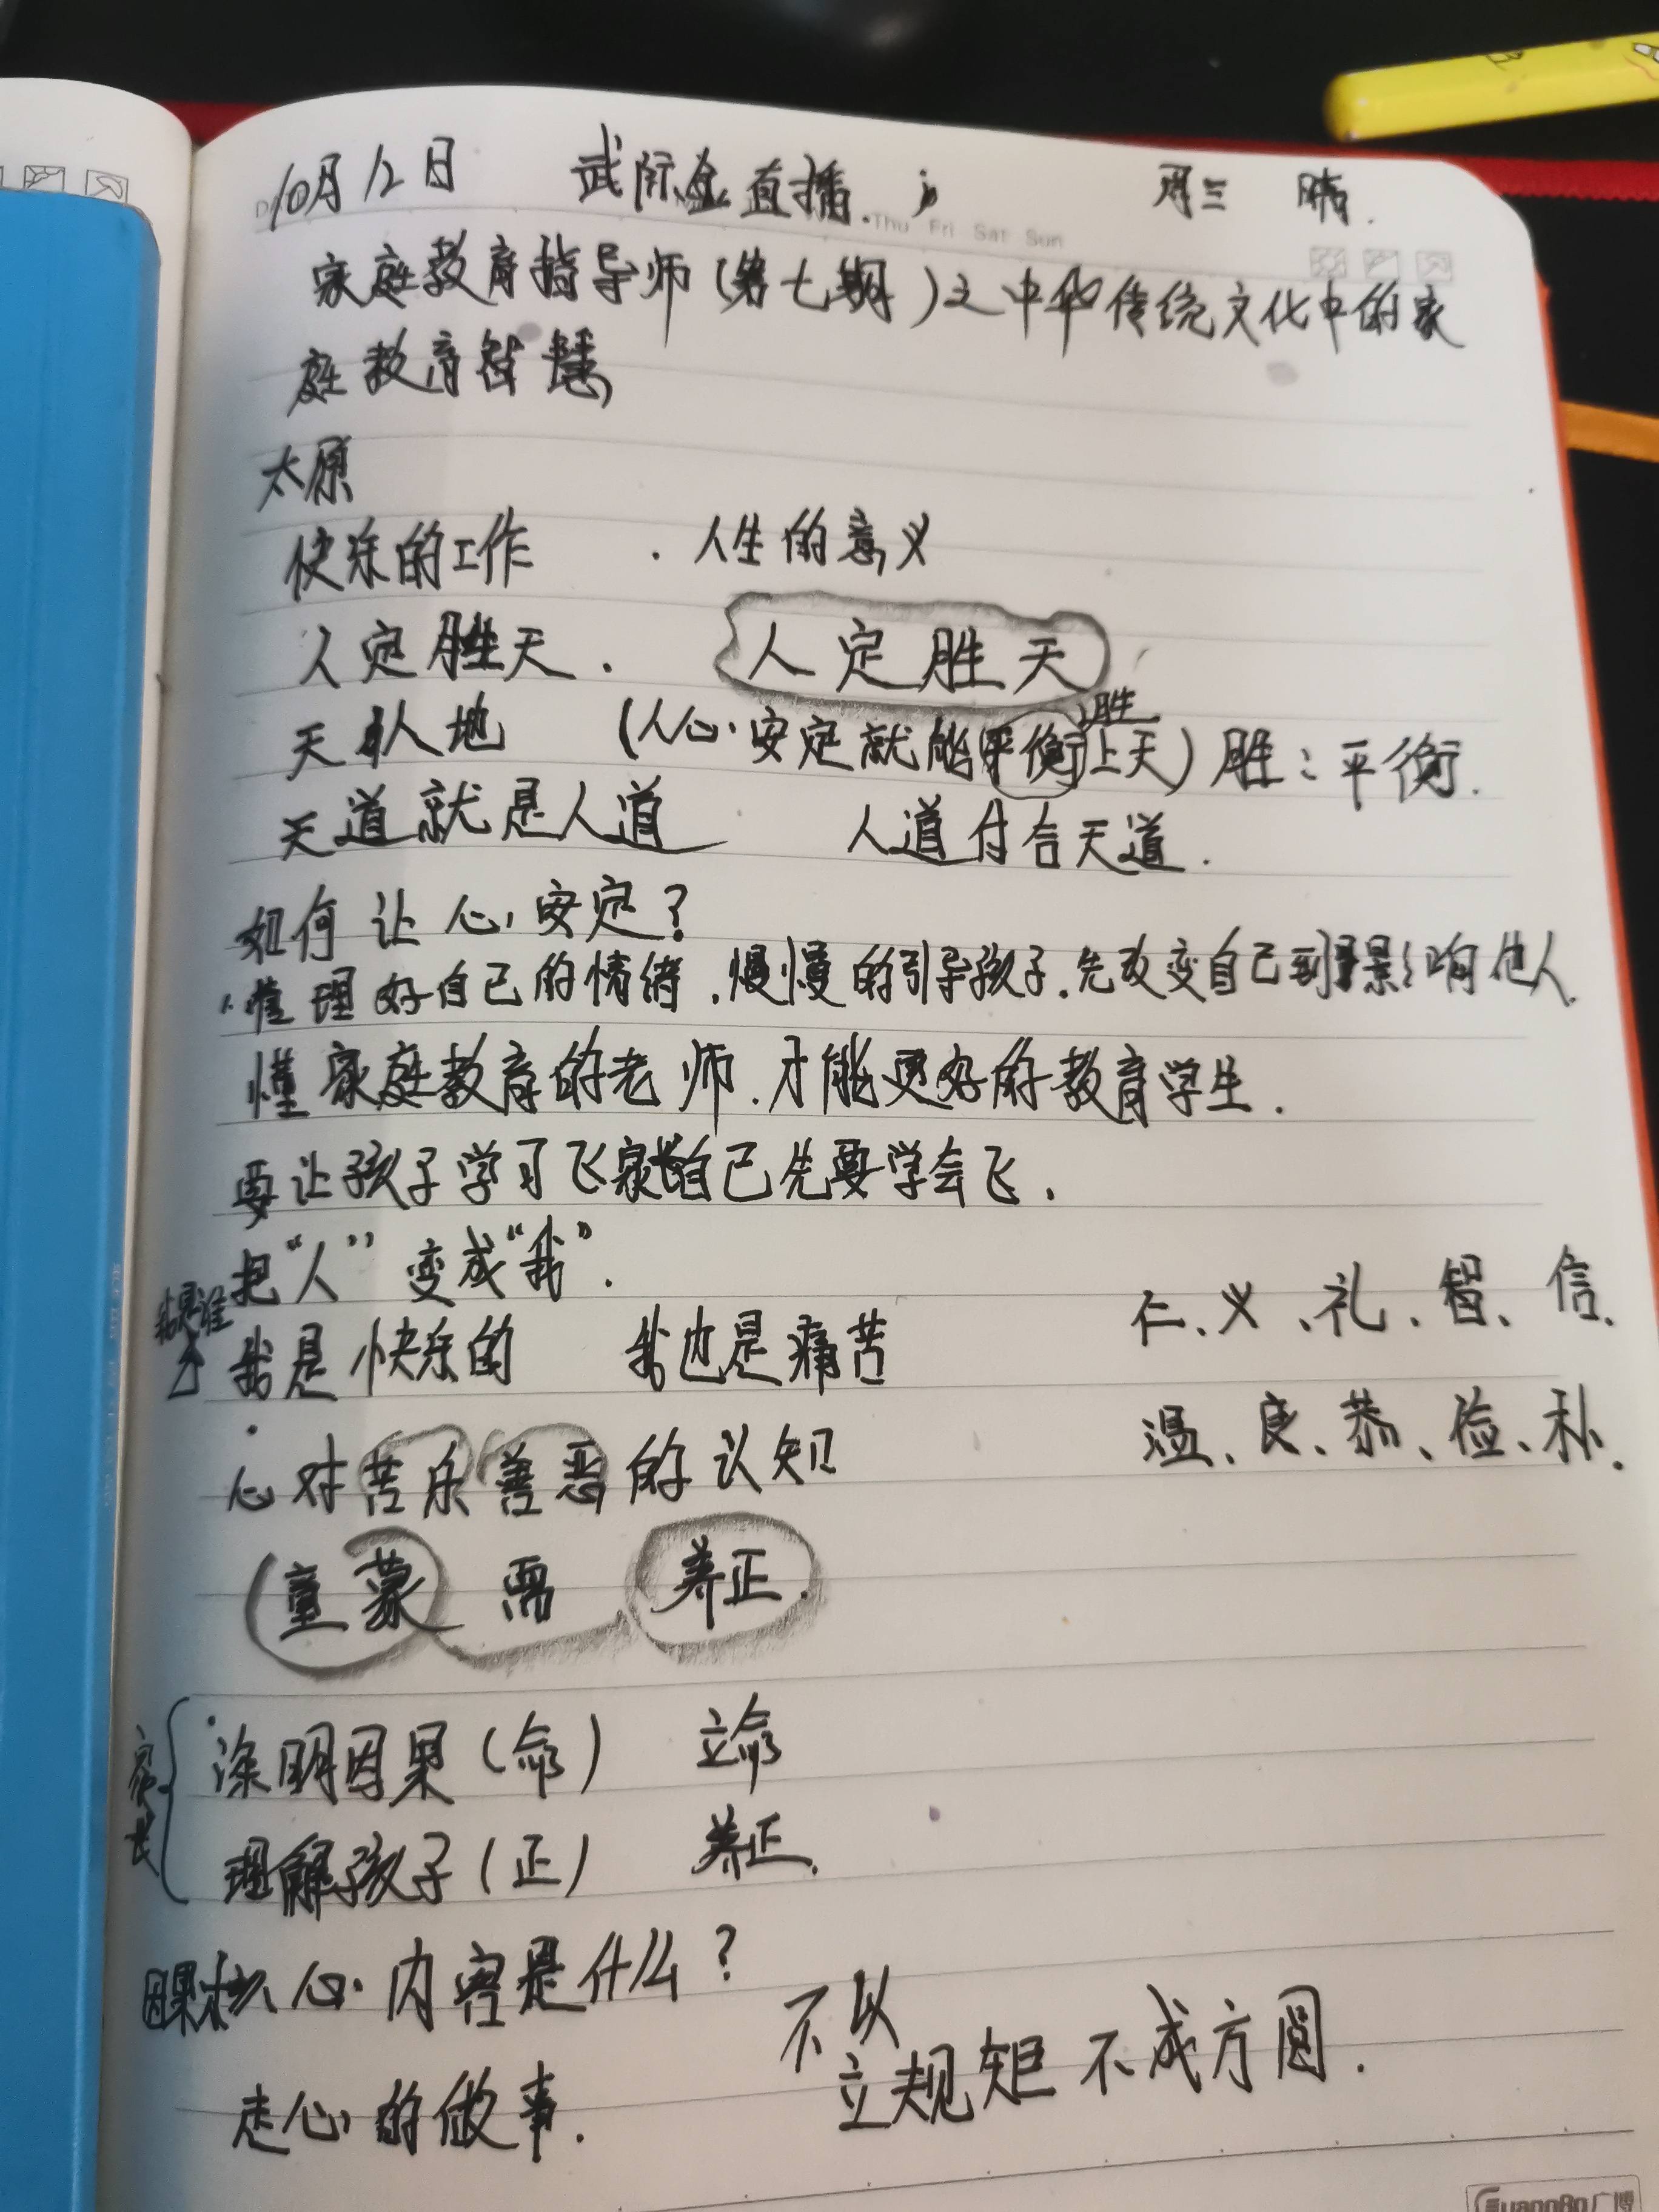 10月12日 武际金直播. 周三 晴.
Thu Fri Sat Sun
家庭教育指导师(第七期)之中华传统文化中的家
庭教育智慧
太原
快乐的工作 . 人生的意义
人定胜天. 人定胜天
天 人 地 (人心安定就能平衡胜上天) 胜:平衡.
天道就是人道 人道付合天道.
如何让心安定?
管理好自己的情绪.慢慢的引导孩子.先改变自己到影响他人.
懂家庭教育的老师.才能更好的教育学生.
要让孩子学习飞家长自己先要学会飞.
把“人”变成“我”.
我是谁
我是快乐的 我也是痛苦
仁、义、礼、智、信.
心对苦乐善恶的认知
温、良、恭、俭、朴.
童蒙需养正.
家长
深明因果(命) 立命
理解孩子(正) 养正.
因果核心内容是什么?
走心的做事.
不以
立规矩不成方圆.
GuangBo广博